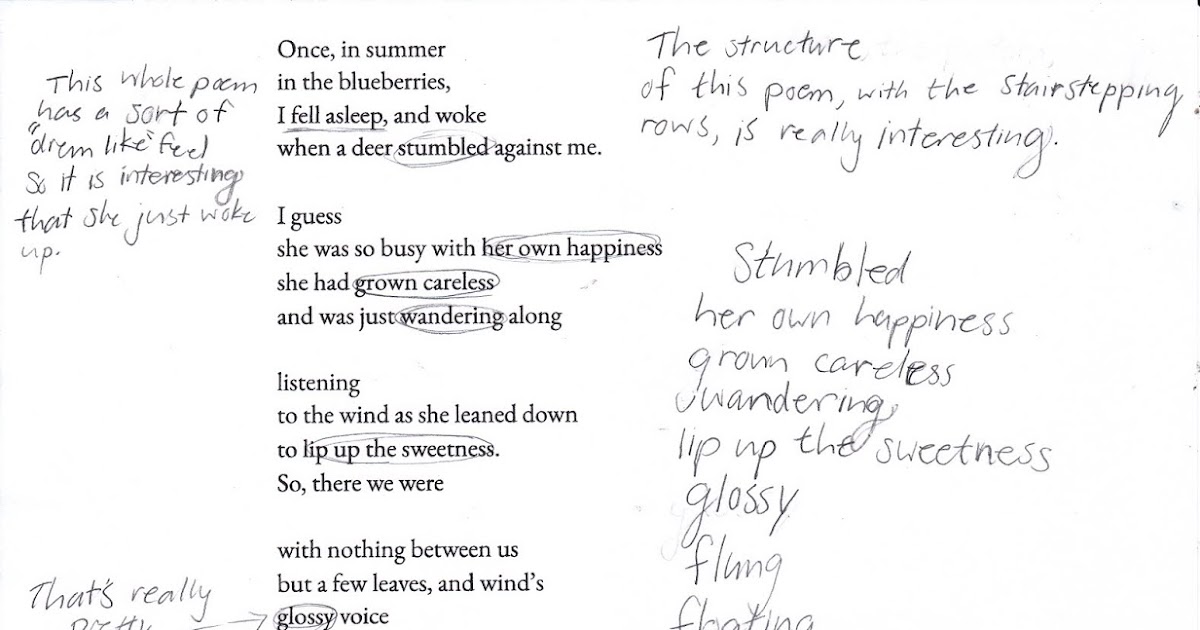 Once, in summer
in the blueberries,
I fell asleep, and woke
when a deer stumbled against me.
I guess
she was so busy with her own happiness
she had grown careless
and was just wandering along
listening
to the wind as she leaned down
to lip up the sweetness.
So, there we were
with nothing between us
but a few leaves, and wind’s
glossy voice
This whole poem
has a sort of
"drem like" feel
So it is interesting
that she just woke
up.
That's really
pretty
The structure
of this poem, with the stairstepping
rows, is really interesting.
Stumbled
her own happiness
grown careless
wandering
lip up the sweetness
glossy
flung
floating